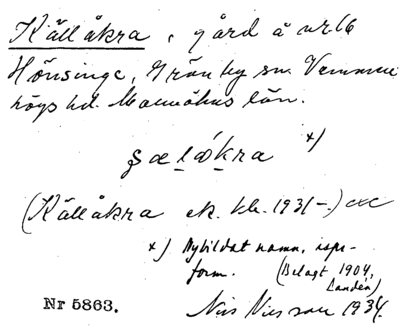 Källåkra, gård å nr 16
Hönsinge, Grönby sn. Vemmen
högs hd. Malmöhus län.
x)
(Källåkra ek. bl. 1931–) etc
x) Nybildat namn, ispr-
form. (Belagt 1904,
Landén)
Nr 5863. Nils Nilsson 1934.